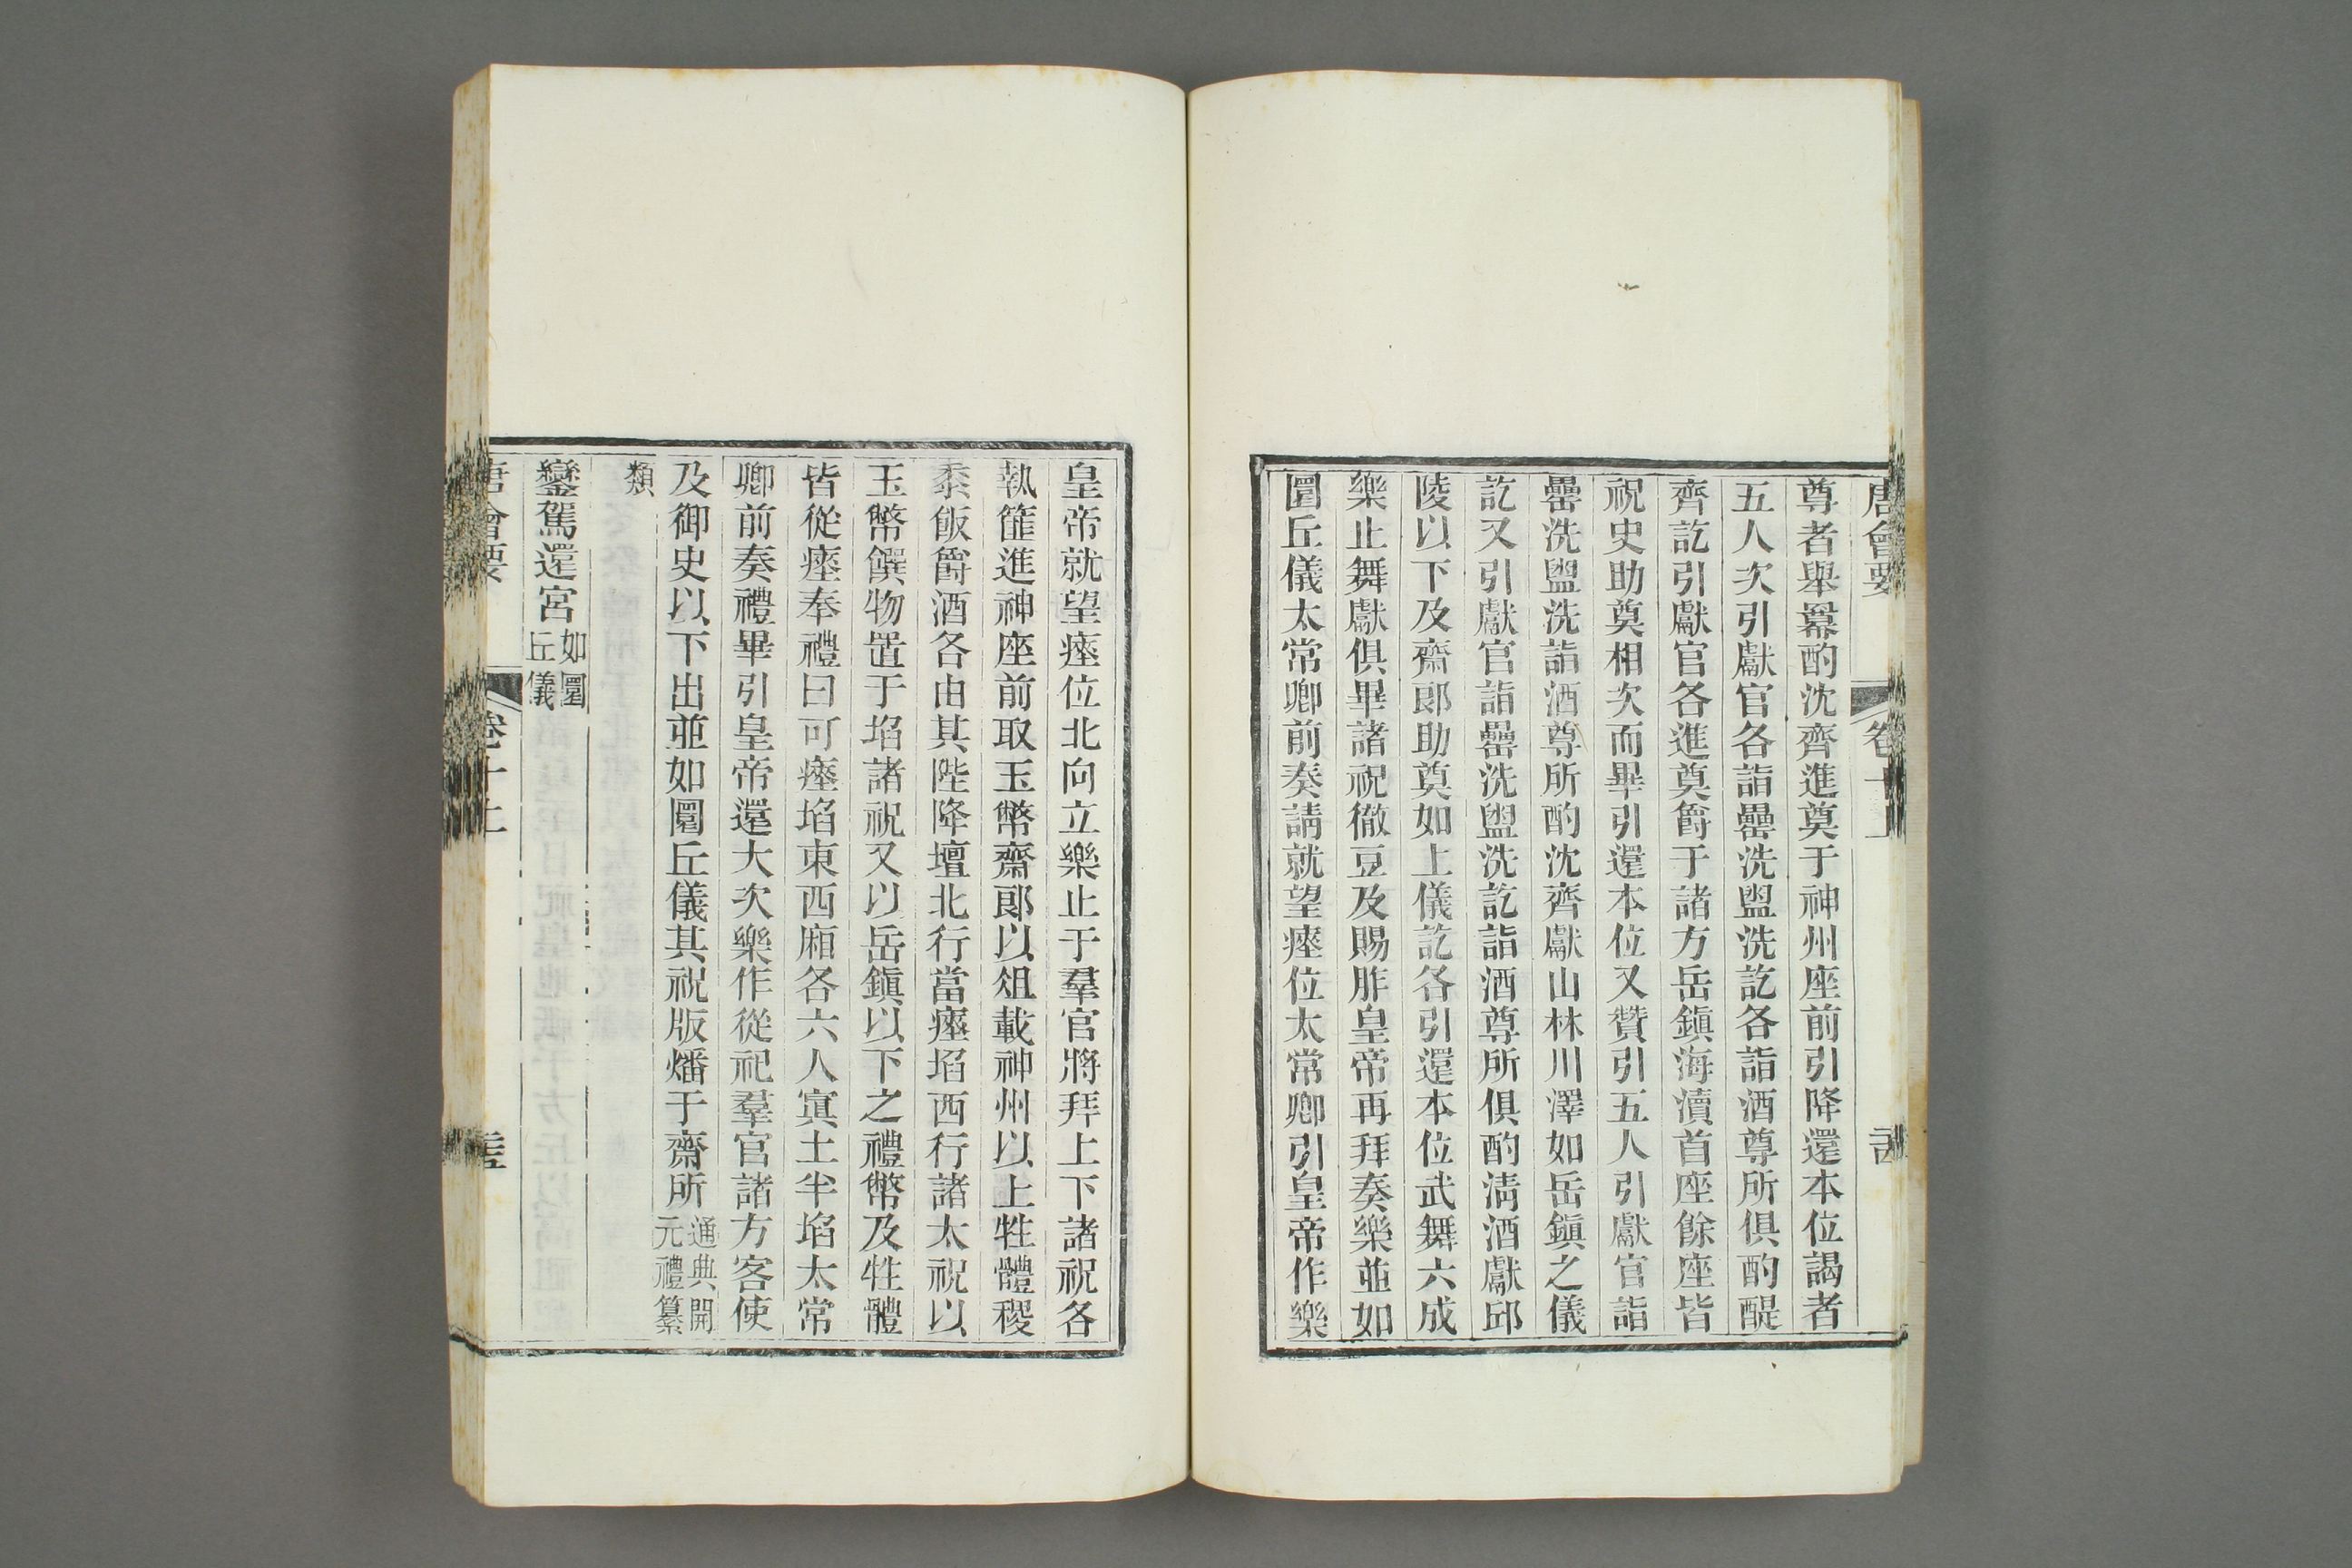 唐會要 卷十上
尊者舉羃酌沈齊進奠于神州座前引降還本位謁者
五人次引獻官各詣罍洗盥洗訖各詣酒尊所俱酌醍
齊訖引獻官各進奠爵于諸方岳鎭海瀆首座餘座皆
祝史助奠相次而畢引還本位又贊引五人引獻官詣
罍洗盥洗詣酒尊所酌沈齊獻山林川澤如岳鎭之儀
訖又引獻官詣罍洗盥洗訖詣酒尊所俱酌淸酒獻邱
陵以下及齋郞助奠如上儀訖各引還本位武舞六成
樂止舞獻俱畢諸祝徹豆及賜胙皇帝再拜奏樂並如
圜丘儀太常卿前奏請就望瘞位太常卿引皇帝作樂
皇帝就望瘞位北向立樂止于羣官將拜上下諸祝各
執篚進神座前取玉幣齋郞以俎載神州以上牲體稷
黍飯爵酒各由其陛降壇北行當瘞埳西行諸太祝以
玉幣饌物置于埳諸祝又以岳鎭以下之禮幣及牲體
皆從瘞奉禮曰可瘞埳東西廂各六人寘土半埳太常
卿前奏禮畢引皇帝還大次樂作從祀羣官諸方客使
及御史以下出並如圜丘儀其祝版燔于齋所通典開
元禮纂
類
鑾駕還宮如圜
丘儀
唐會要 卷十上